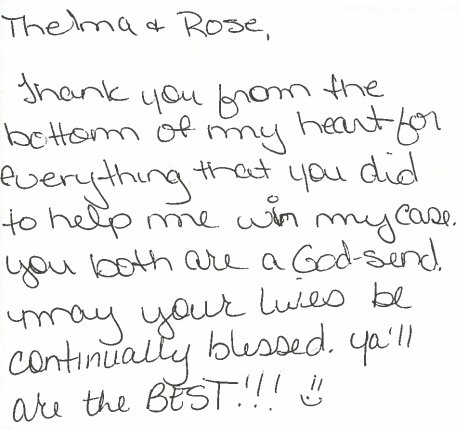 Thelma & Rose,
Thank you from the
bottom of my heart for
everything that you did
to help me win my case.
you both are a God-send.
may your lives be
continually blessed. ya'll
are the BEST!!! :)